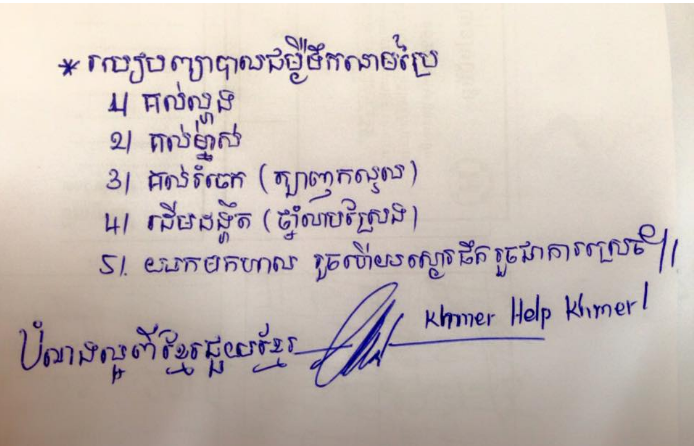 * របៀបព្យាបាលជម្ងឺទឹកនោមប្រៃ
1/ គល់ល្ហុង
2/ គល់ម្នាស់
3/ គល់រំចេក (ត្បាញកន្ទេល)
4/ ដើមដង្ហិត (ច្នាំលបស្រែង)
5/. យកមកហាល រួចហើយស្ងោរផឹករួចជាការស្រេច //
បំណាងល្អពីខ្មែរជួយខ្មែរ Khmer Help Khmer!